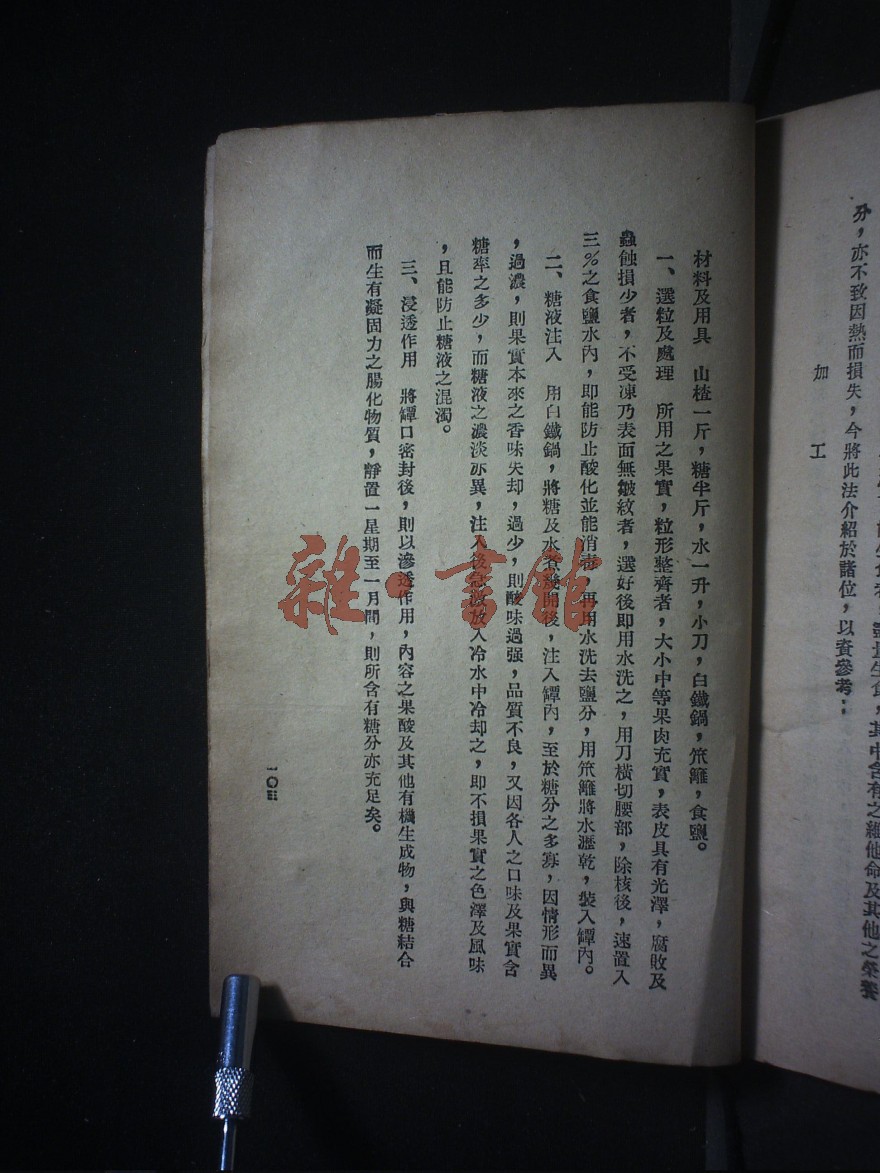 分,亦不致因熱而損失,今將此法介紹於諸位,以資參考:
加工
材料及用具 山楂一斤,糖半斤,水一升,小刀,白鐵鍋,笊籬,食鹽。
一、選粒及處理 所用之果實,粒形整齊者,大小中等果肉充實,表皮具有光澤,腐敗及
蟲蝕損少者,不受凍乃表面無皺紋者,選好後即用水洗之,用刀橫切腰部,除核後,速置入
三%之食鹽水內,即能防止酸化並能消毒,再用水洗去鹽分,用笊籬將水瀝乾,裝入罈內。
二、糖液注入 用白鐵鍋,將糖及水煮幾開後,注入罈內,至於糖分之多寡,因情形而異
,過濃,則果實本來之香味失却,過少,則酸味過强,品質不良,又因各人之口味及果實含
糖率之多少,而糖液之濃淡亦異,注入後急激放入冷水中冷却之,即不損果實之色澤及風味
,且能防止糖液之混濁。
三、浸透作用 將罈口密封後,則以滲透作用,內容之果酸及其他有機生成物,與糖結合
而生有凝固力之腸化物質,靜置一星期至一月間,則所含有糖分亦充足矣。
一〇三
雜·書館